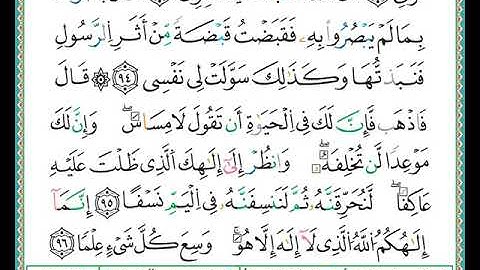 بِمَا لَمْ يَبْصُرُوا۟ بِهِۦ فَقَبَضْتُ قَبْضَةً مِّنْ أَثَرِ الرَّسُولِ
فَنَبَذتُّهَا وَكَذَٰلِكَ سَوَّلَتْ لِى نَفْسِى ٩٤ ۞ قَالَ
فَاذْهَبْ فَإِنَّ لَكَ فِى الْحَيَوٰةِ أَن تَقُولَ لَا مِسَاسَ ۖ وَإِنَّ لَكَ
مَوْعِدًا لَّن تُخْلِفَهُۥ ۖ وَانظُرْ إِلَىٰٓ إِلَٰهِكَ الَّذِى ظَلْتَ عَلَيْهِ
عَاكِفًا ۖ لَّنُحَرِّقَنَّهُۥ ثُمَّ لَنَنسِفَنَّهُۥ فِى الْيَمِّ نَسْفًا ٩٥ إِنَّمَآ
إِلَٰهُكُمُ اللَّهُ الَّذِى لَآ إِلَٰهَ إِلَّا هُوَ ۚ وَسِعَ كُلَّ شَىْءٍ عِلْمًا ٩٦